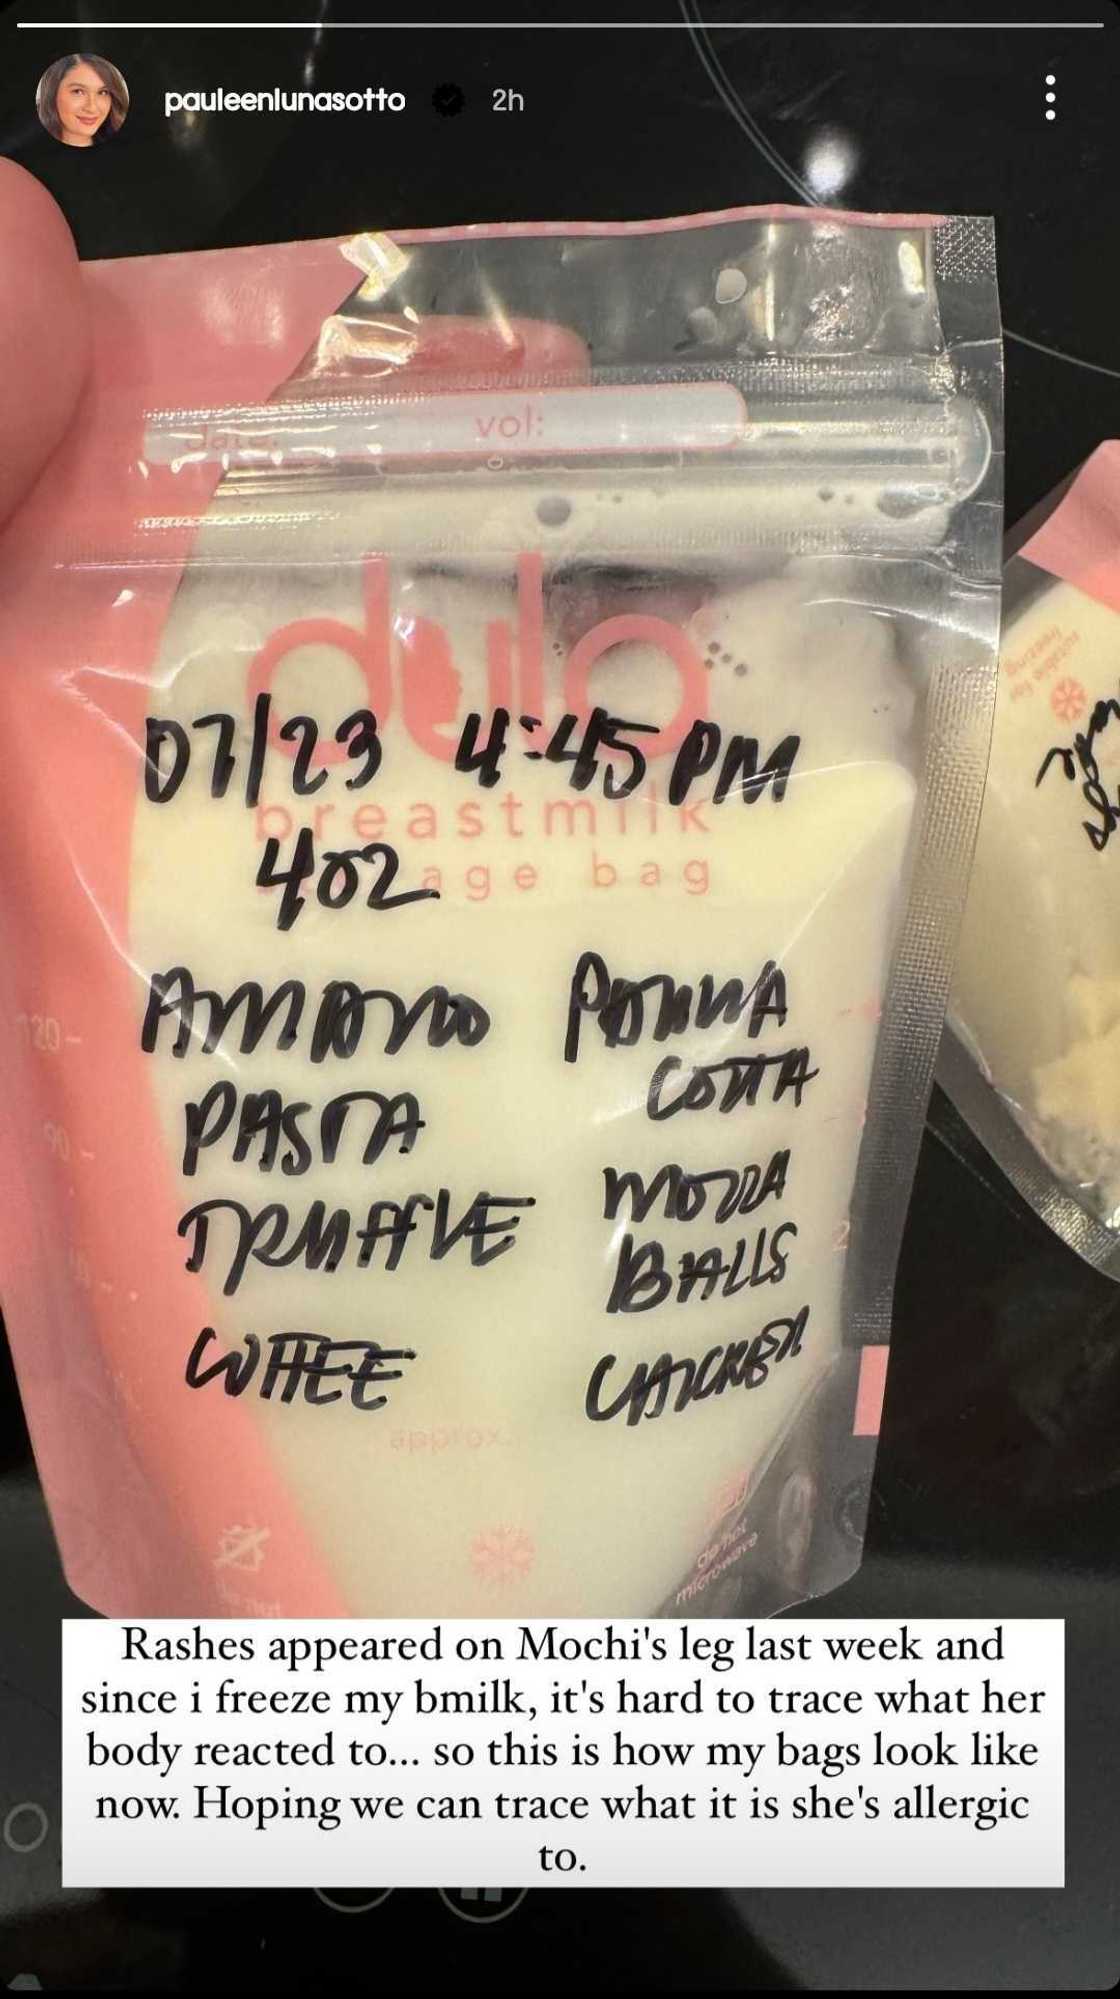 pauleenlunasotto 2h
date: vol:
dulo
07/23 4:45 PM
breastmilk
4oz
age bag
AMANO
PASTA
TRUFFLE
COFFEE
PANNA
COTTA
MOZZA
BALLS
CHICKEN
120-
90-
approx.
do not
microwave
Rashes appeared on Mochi's leg last week and
since i freeze my bmilk, it's hard to trace what her
body reacted to... so this is how my bags look like
now. Hoping we can trace what it is she's allergic
to.